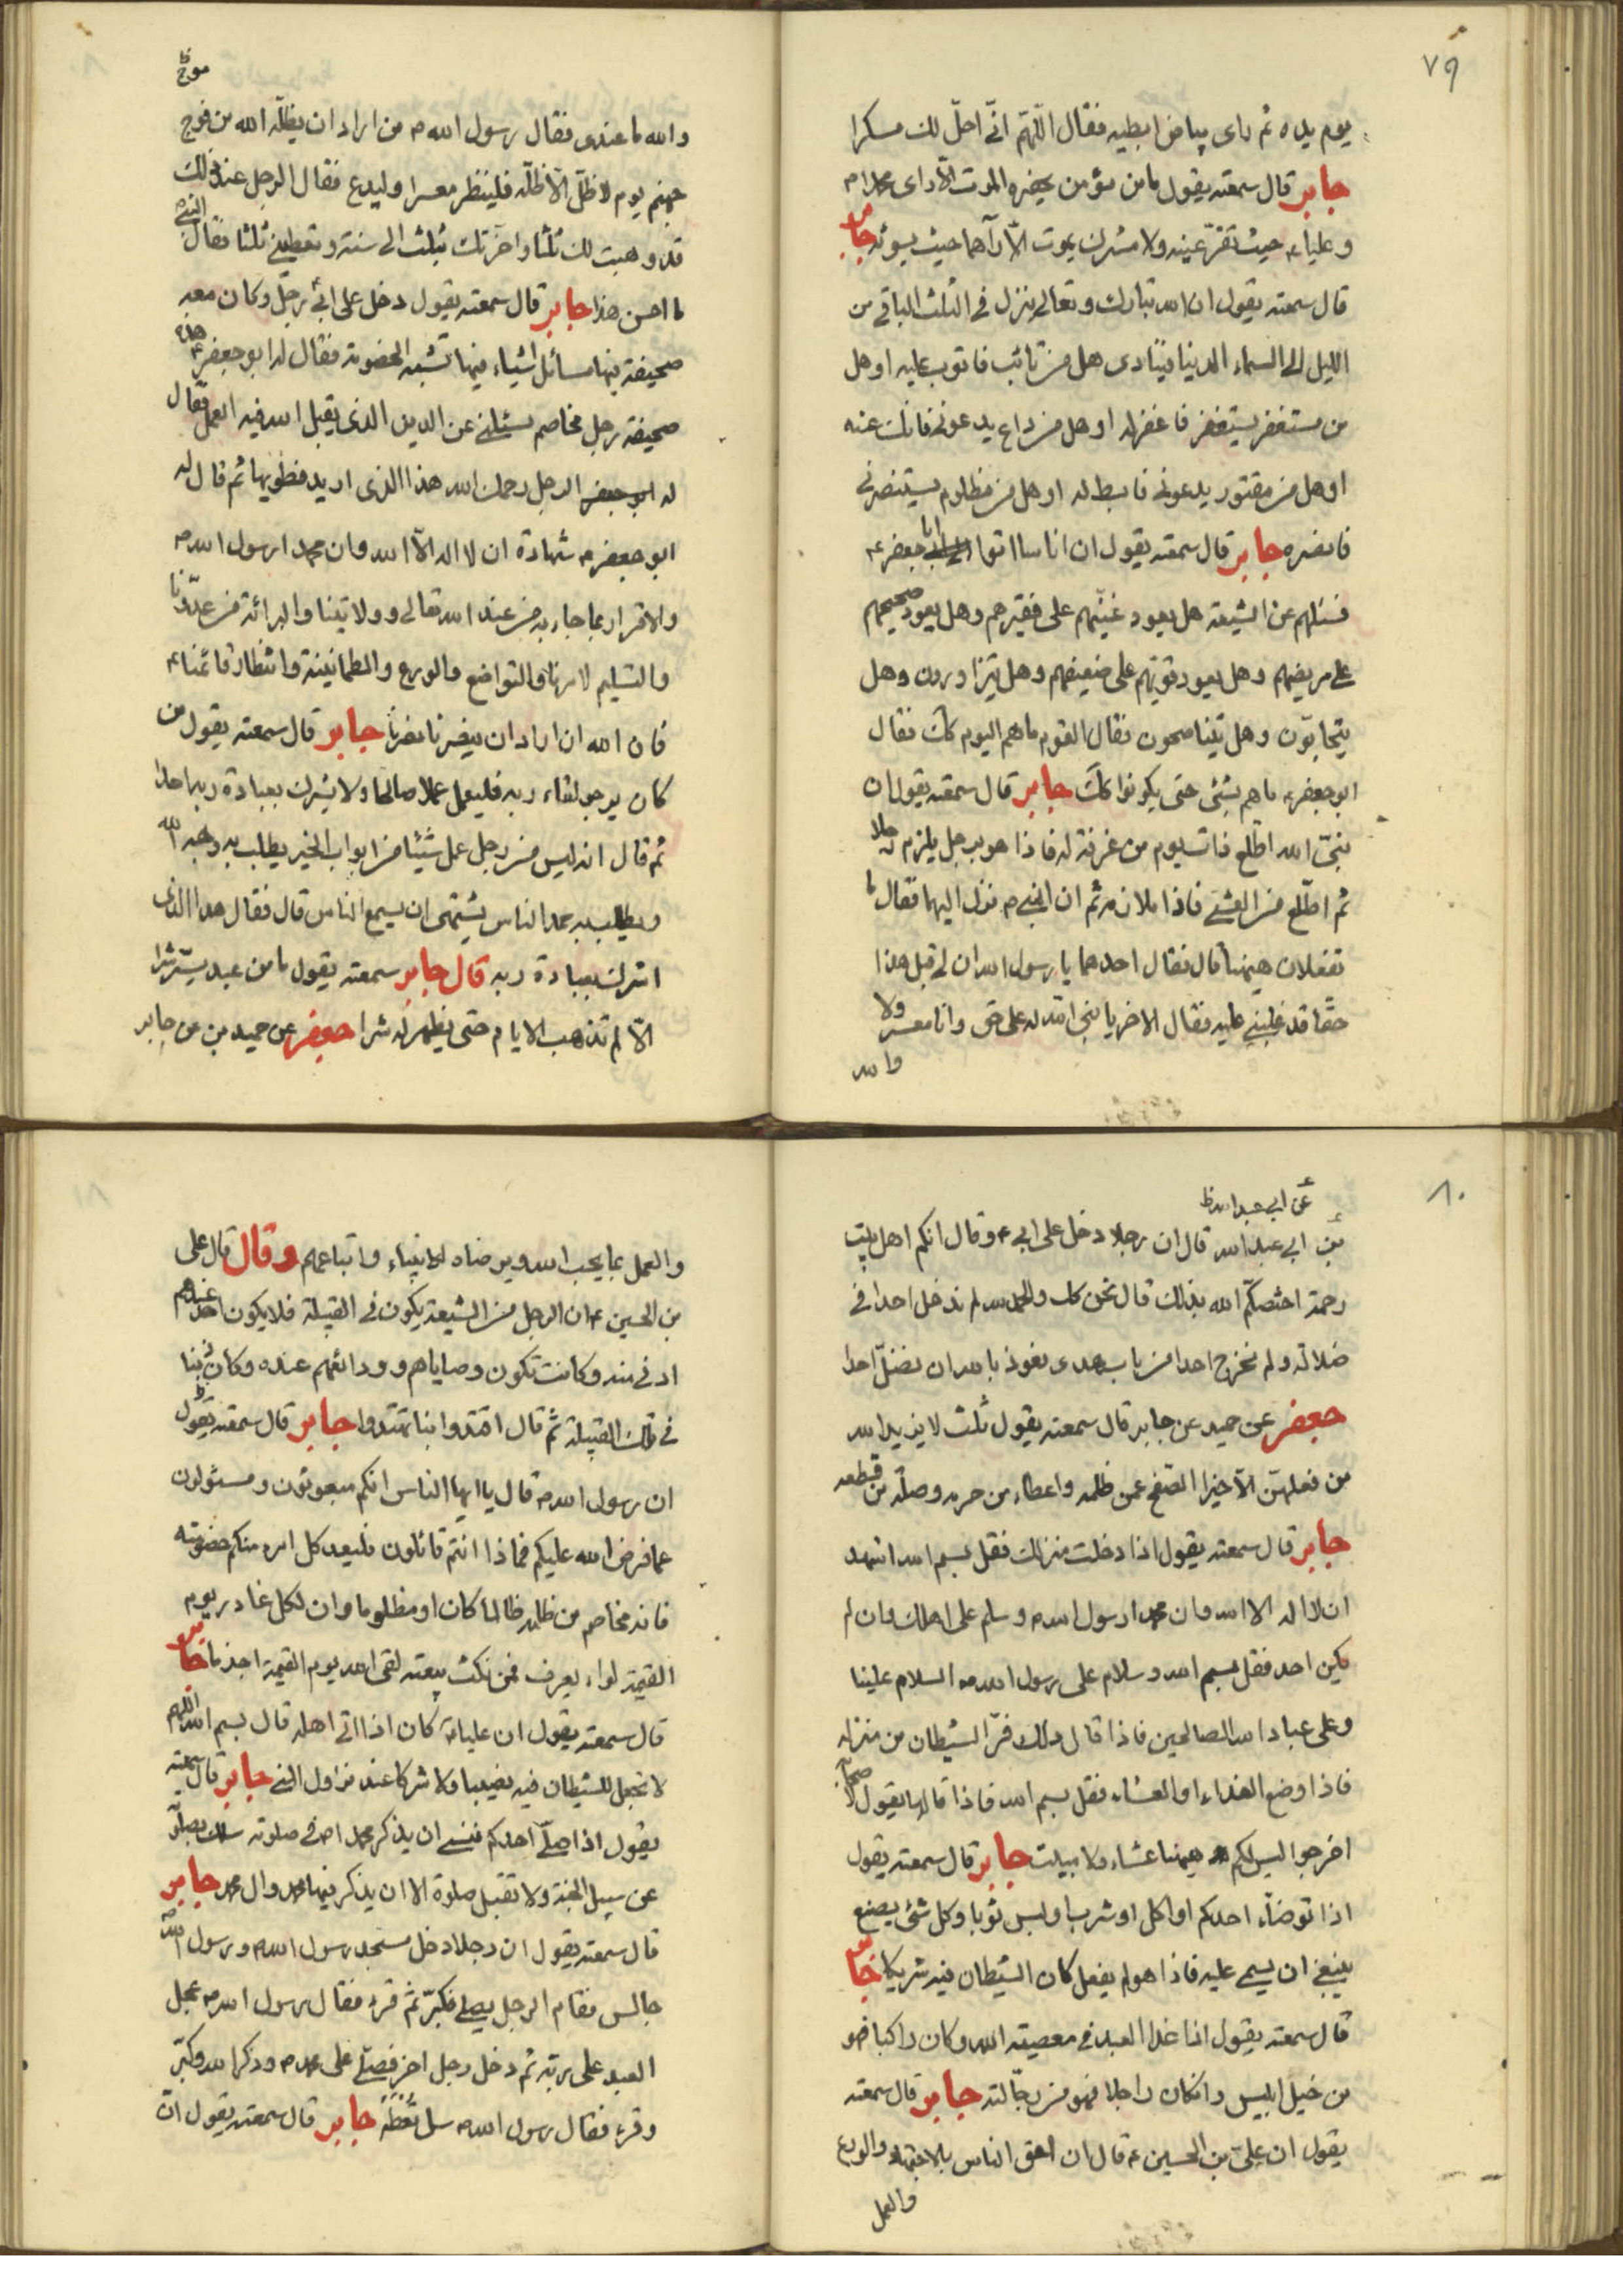 ٧٩
يوم يده ثم راى بياض ابطيه فقال اللّهمّ انّى احلّ لك مسكرا
جابر قال سمعته يقول ما من مؤمن يحضره الموت الّا راى محمدا ص
وعليا ع حيث تقرّ عينه ولا مشرك يموت الّا رآهما حيث يسوئه جابر
قال سمعته يقول ان الله تبارك وتعالى ينزل فى الثلث الباقى من
الليل الى السماء الدنيا فينادى هل من تائب فاتوب عليه او هل
من مستغفر يستغفر فاغفر له او هل من داع يدعونى فافك عنه
او هل من مقتور يدعونى فابسط له او هل من مظلوم يستنصرنى
فانصره جابر قال سمعته يقول ان اناسا اتوا ابا جعفر ع
فسئلهم عن الشيعة هل يعود غنيّهم على فقيرهم وهل يعود صحيحهم
على مريضهم وهل يعود قويّهم على ضعيفهم وهل يتزاورون وهل
يتحابّون وهل يتناصحون فقال القوم ما هم اليوم كك فقال
ابو جعفر ع ما هم بشئ حتى يكونوا كك جابر قال سمعته يقول ان
نبىّ الله اطّلع ذات يوم من غرفة له فاذا هو برجل يلزم رجلا
ثم اطّلع من العشى فاذا ملازمه ثم ان النبى ص نزل اليهما فقال ما
تفعلان هيهنا قال فقال احدهما يا رسول الله ان لى قبل هذا
حقا قد غلبنى عليه فقال الاخر يا نبى الله له على حق وانا معسر ولا
والله
موج
والله ما عندى فقال رسول الله ص من اراد ان يظلّه الله من فوج
جهنم يوم لا ظلّ الّا ظلّه فلينظر معسرا وليدع فقال الرجل عند ذلك
قد وهبت لك ثلثا واخّرتك بثلث الى سنة وتعطينى ثلثا فقال النبى ص
ما احسن هذا جابر قال سمعته يقول دخل على ابى رجل وكان معه
صحيفة فيها مسائل اشياء فيها تشبه الخصومة فقال له ابو جعفر ع هذه
صحيفة رجل مخاصم يسئلنى عن الدين الذى يقبل الله فيه العمل فقال
له ابو جعفر الرجل رحمك الله هذا الذى اريد فطويها ثم قال له
ابو جعفر ع شهادة ان لا اله الّا الله وان محمدا رسول الله ص
والاقرار بما جاء به من عند الله تعالى وولايتنا والبرائة من عدوّنا
والتسليم لامرنا والتواضع والورع والطمانينة وانتظار قائمنا ع
فان الله ان اراد ان ينصرنا نصرنا جابر قال سمعته يقول من
كان يرجو لقاء ربه فليعمل عملا صالحا ولا يشرك بعبادة ربه احدا
ثم قال انه ليس من رجل عمل شيئا من ابواب الخير يطلب به وجه الله
ويطلب به حمد الناس يشتهى ان يسمع الناس قال فقال هذا الذى
اشرك بعبادة ربه قال جابر سمعته يقول ما من عبد يسرّ شرا
الّا لم تذهب الايام حتى يظهر له شرا جعفر عن حميد بن عن جابر
٨٠
عن ابى عبد الله ظ
بن ابى عبد الله قال ان رجلا دخل على ابى ع وقال انكم اهل بيت
رحمة اختصكم الله بذلك قال نحن كك والحمد لله لم ندخل احدا فى
ضلالة ولم نخرج احدا من باب هدى نعوذ بالله ان نضلّ احدا
جعفر عن حميد عن جابر قال سمعته يقول ثلث لا يزيد الله
من فعلهنّ الّا خيرا الصفح عمن ظلمه واعطاء من حرمه وصلة من قطعه
جابر قال سمعته يقول اذا دخلت منزلك فقل بسم الله اشهد
ان لا اله الا الله وان محمدا رسول الله ص وسلم على اهلك وان لم
يكن احد فقل بسم الله وسلام على رسول الله ص السلام علينا
وعلى عباد الله الصالحين فاذا قال ذلك فرّ الشيطان من منزله
فاذا وضع الغداء او العشاء فقل بسم الله فاذا قالها يقول لاصحابه
اخرجوا ليس لكم هيهنا عشاء ولا مبيت جابر قال سمعته يقول
اذا توضأ احدكم او اكل او شرب او لبس ثوبا وكل شئ يصنع
ينبغى ان يسمى عليه فاذا هو لم يفعل كان الشيطان فيه شريكا جابر
قال سمعته يقول اذا غدا العبد فى معصية الله وكان راكبا فهو
من خيل ابليس واذا كان راجلا فهو من رجّالته جابر قال سمعته
يقول ان على بن الحسين ع قال ان احق الناس بالاجتهاد والورع
والعمل
٨١
والعمل بما يحب الله ويرضاه الانبياء واتباعهم وقال قال على
بن الحسين ع ان الرجل من الشيعة يكون فى القبيلة فلا يكون احد عندهم
ادنى منه وكانت تكون وصاياهم وودائعهم عنده وكان ربنا
فى تلك القبيلة ثم قال اقتدوا بنا تهتدوا جابر قال سمعته يقول
ان رسول الله ص قال يا ايها الناس انكم مبعوثون ومسئولون
عما فرض الله عليكم فماذا انتم قائلون فليعد كل امره منكم خصومته
فانه مخاصم من ظلمه ظالما كان او مظلوما وان لكل غادر يوم
القيمة لواء يعرف فمن نكث بيعته لقى الله يوم القيمة اجذما جابر
قال سمعته يقول ان عليا ع كان اذا اتى اهله قال بسم الله اللهم
لا تجعل للشيطان فيه نصيبا ولا شركا عند نزول المنى جابر قال سمعته
يقول اذا صلّى احدكم فنسى ان يذكر محمدا ص فى صلوته سلك بصلوته
عن سبيل الجنة ولا تقبل صلوة الا ان يذكر فيها محمد وال محمد جابر
قال سمعته يقول ان رجلا دخل مسجد رسول الله ص ورسول الله
جالس فقام الرجل يصلى فكبّر ثم قرء فقال رسول الله ص عجل
العبد على ربّه ثم دخل رجل اخر فصلّى على محمد ص وذكر الله وكبّر
وقرء فقال رسول الله ص سل تعطه جابر قال سمعته يقول انّ